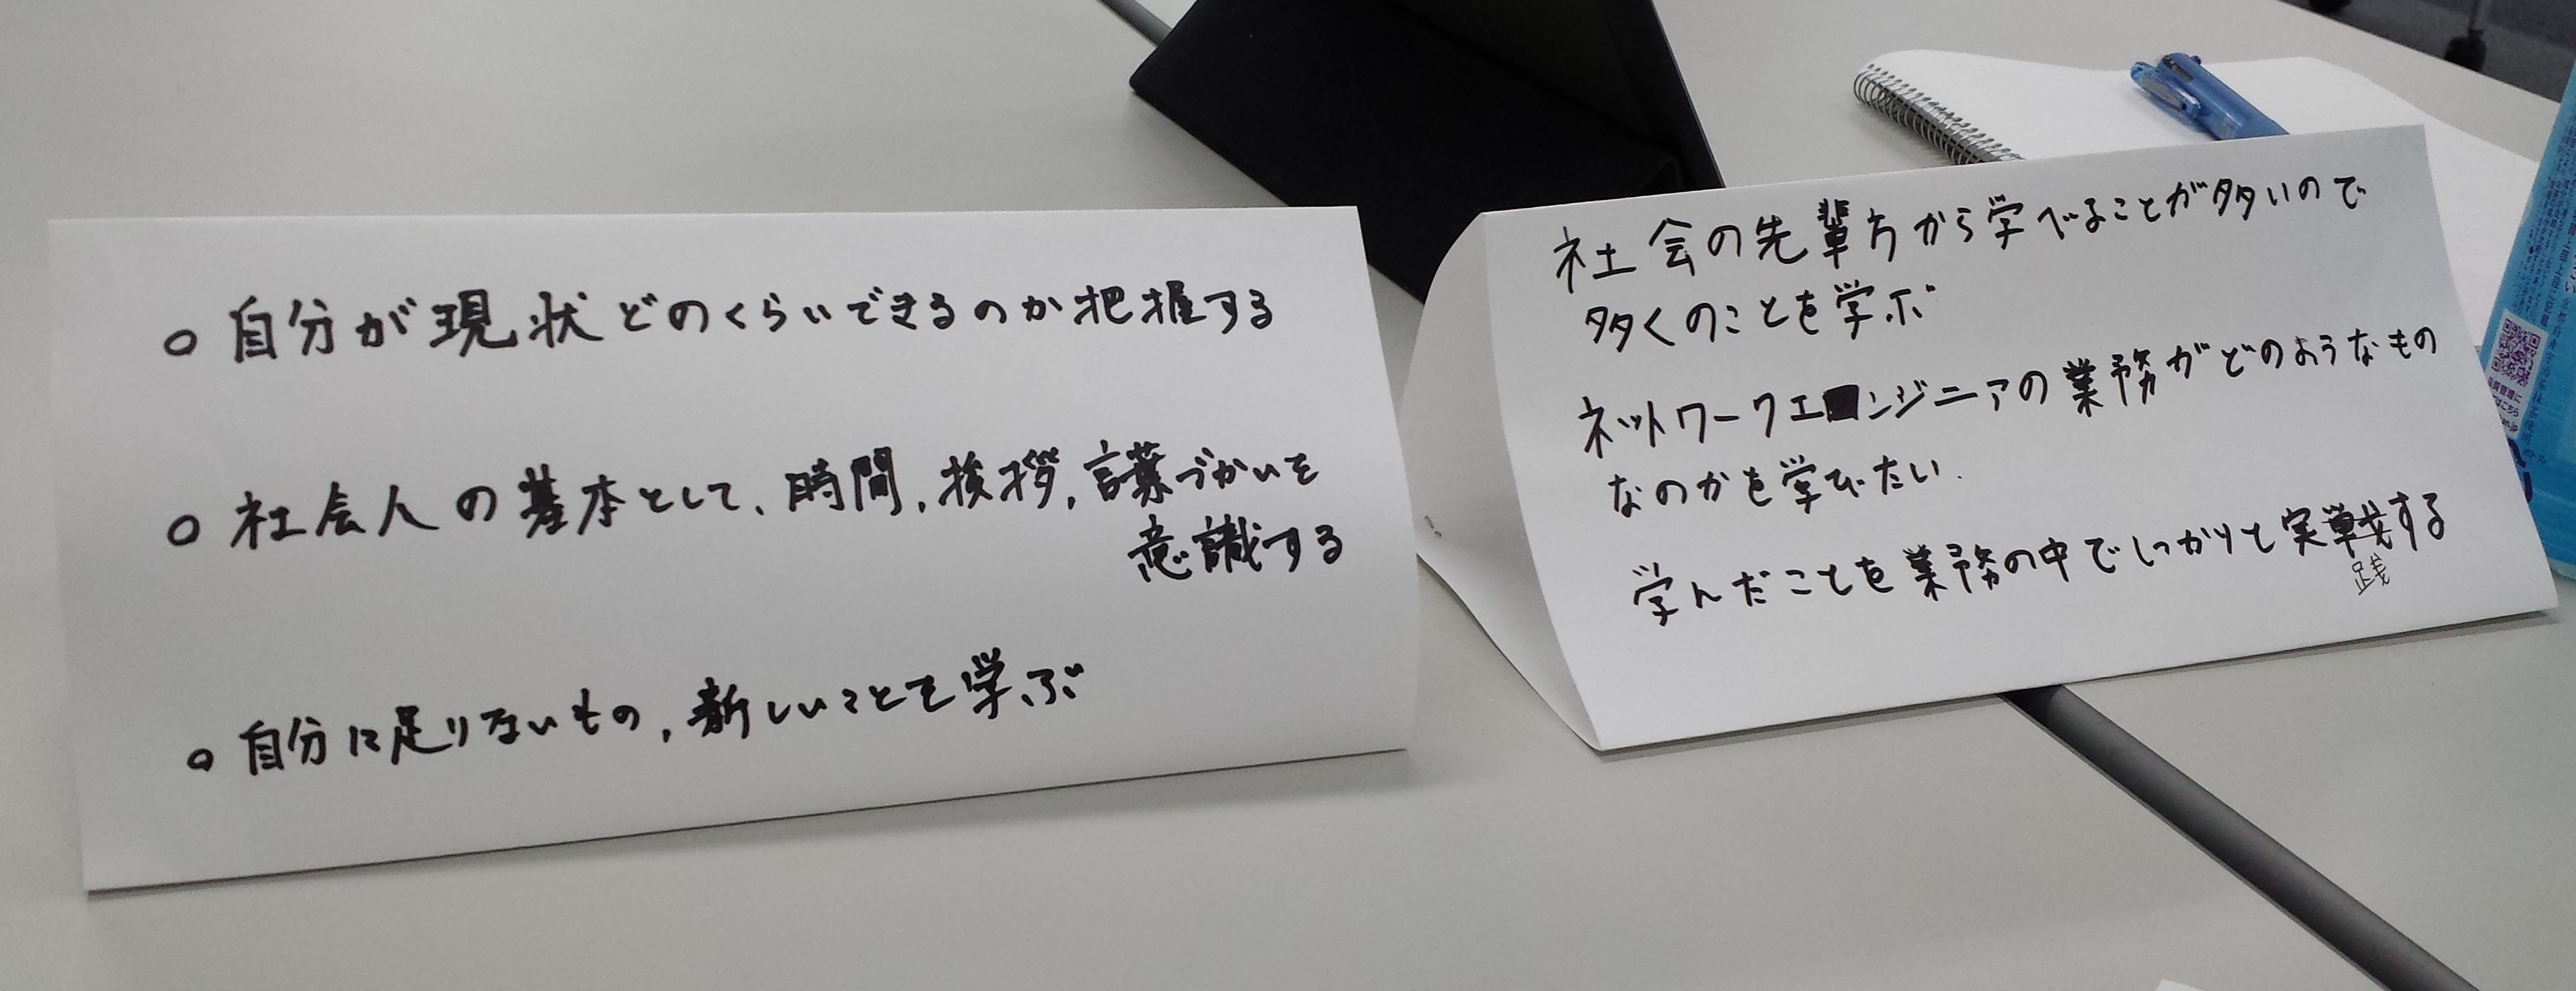 ○ 自分が現状どのくらいできるのか把握する
○ 社会人の基本として、時間,挨拶,言葉づかいを
意識する
○ 自分に足りないもの,新しいことを学ぶ
社会の先輩方から学べることが多いので
多くのことを学ぶ
ネットワークエンジニアの業務がどのようなもの
なのかを学びたい.
学んだことを業務の中でしっかりと実戦する
践